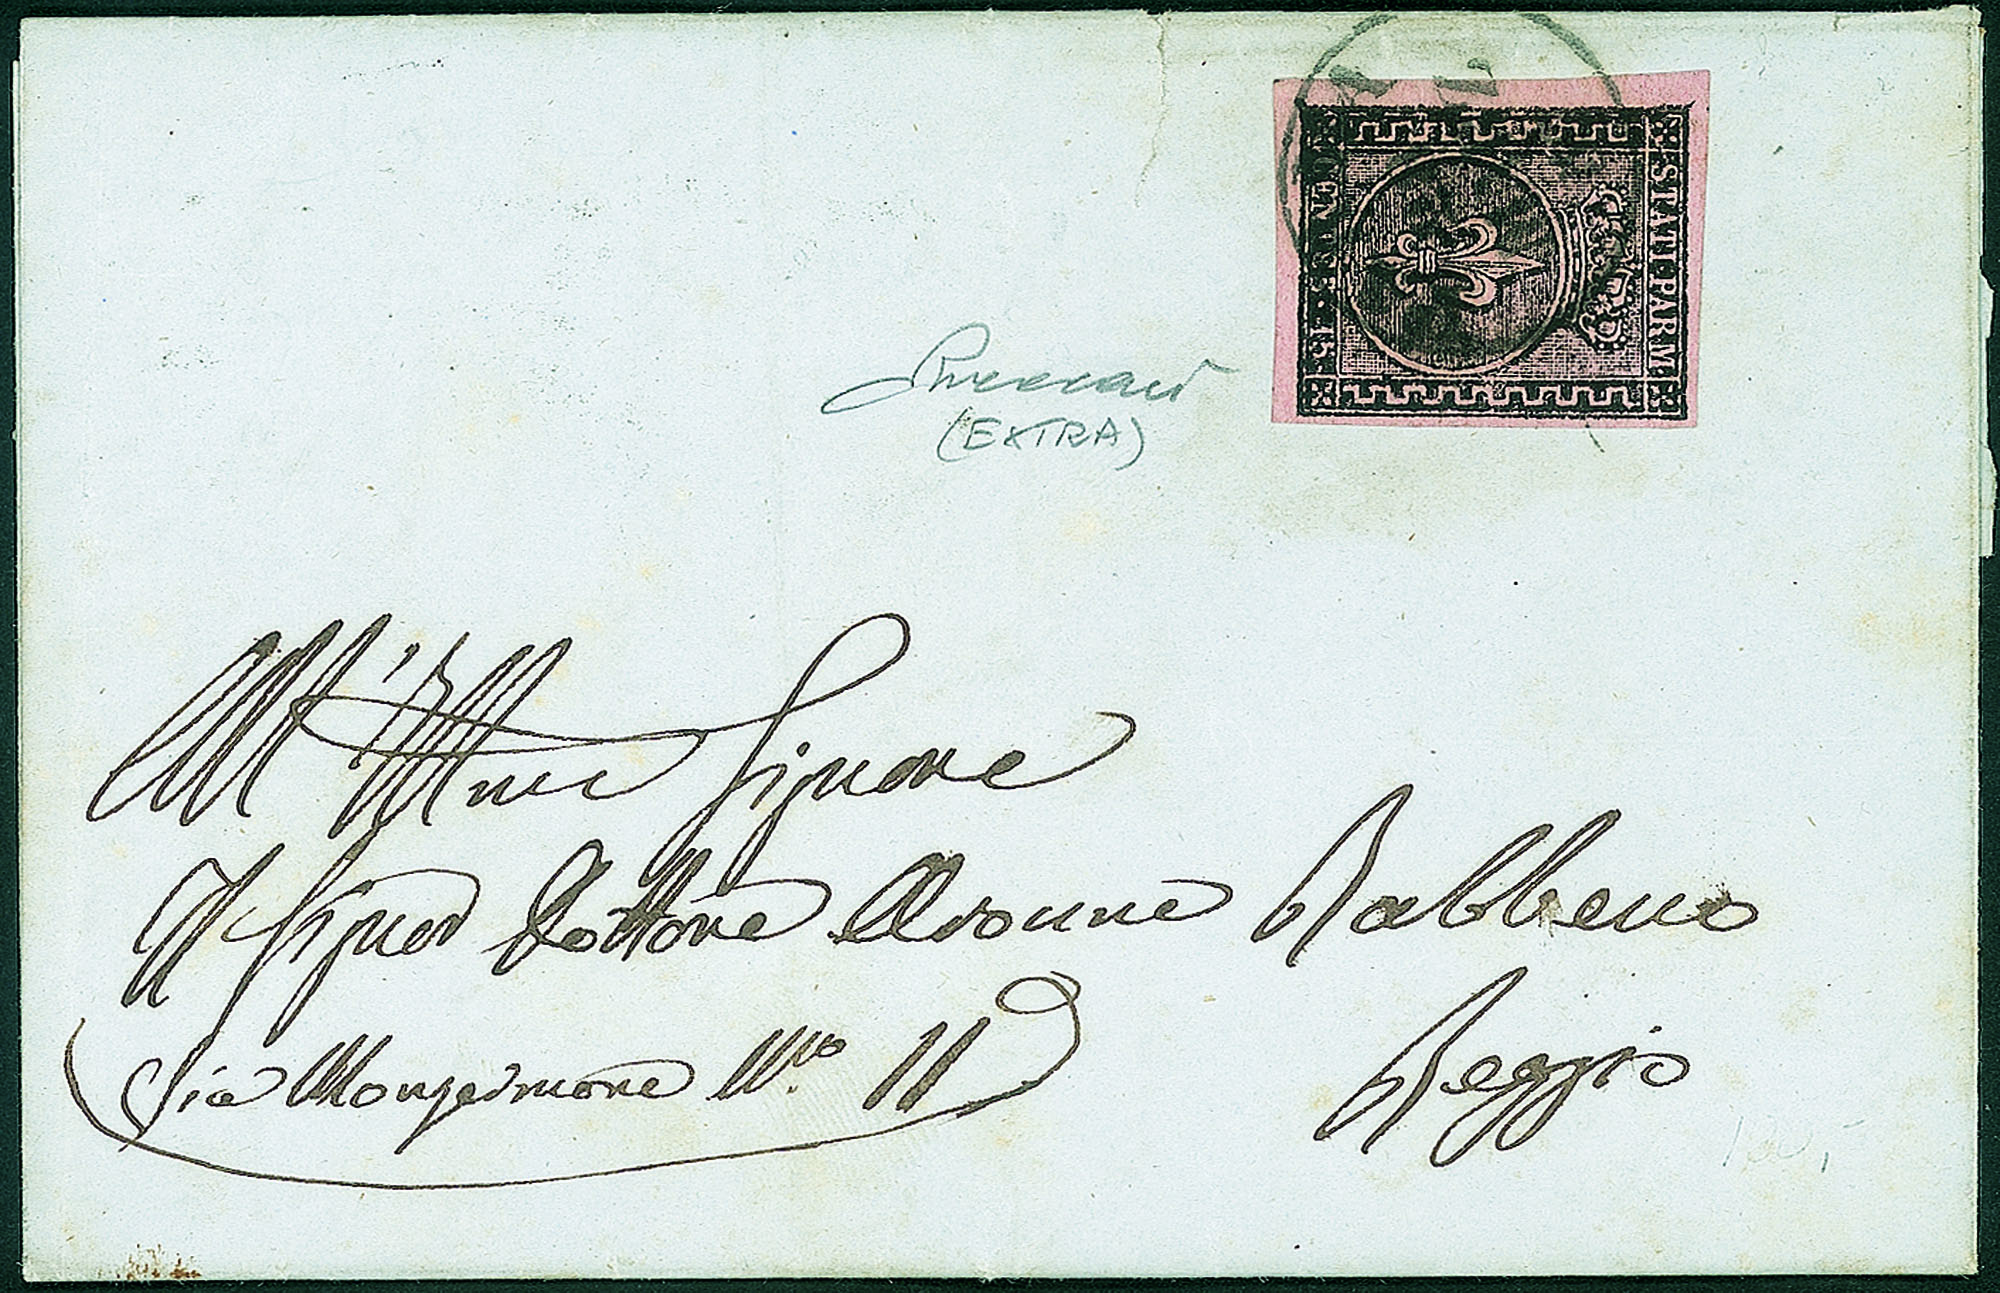 STATI PARM.
15 CENTES.
(EXTRA)
All' Ill.mo Signore
Il Signor Dottore Aronne Rabbeno
Via Monzermone N.ro 11
Reggio